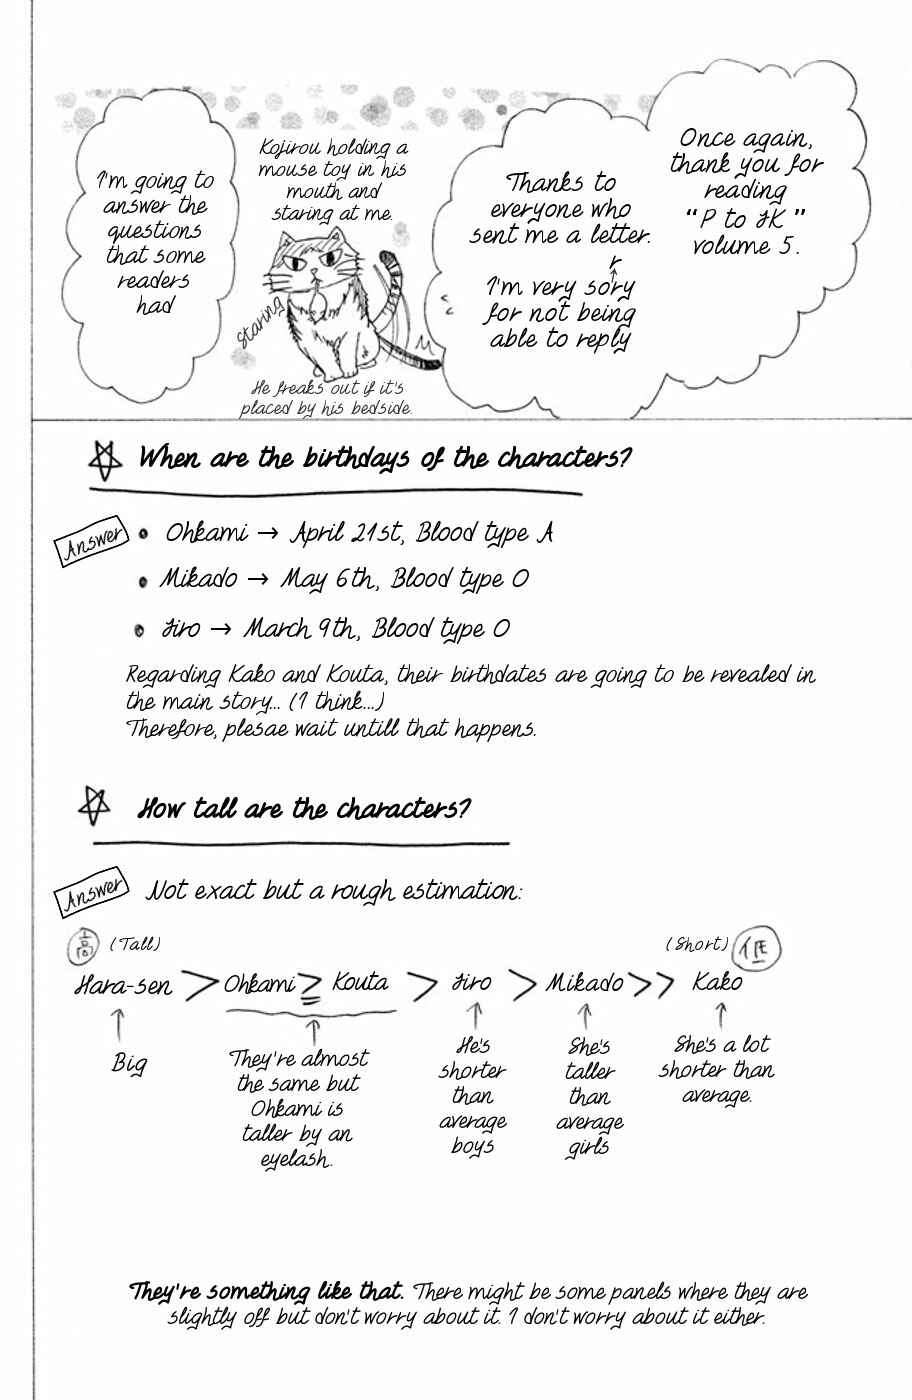 Once again,
thank you for
reading
“P to JK”
volume 5.
Thanks to
everyone who
sent me a letter.
r
I'm very sory
for not being
able to reply
Kojirou holding a
mouse toy in his
mouth and
staring at me.
staring
He freaks out if it's
placed by his bedside.
I'm going to
answer the
questions
that some
readers
had
When are the birthdays of the characters?
Answer
• Ohkami → April 21st, Blood type A
• Mikado → May 6th, Blood type O
• Jiro → March 9th, Blood type O
Regarding Kako and Kouta, their birthdates are going to be revealed in
the main story... (I think...)
Therefore, plesae wait untill that happens.
How tall are the characters?
Answer
Not exact but a rough estimation:
高 (Tall)
(Short) 低
Hara-sen > Ohkami ≧ Kouta > Jiro > Mikado >> Kako
Big
They're almost
the same but
Ohkami is
taller by an
eyelash.
He's
shorter
than
average
boys
She's
taller
than
average
girls
She's a lot
shorter than
average.
They're something like that. There might be some panels where they are
slightly off but don't worry about it. I don't worry about it either.